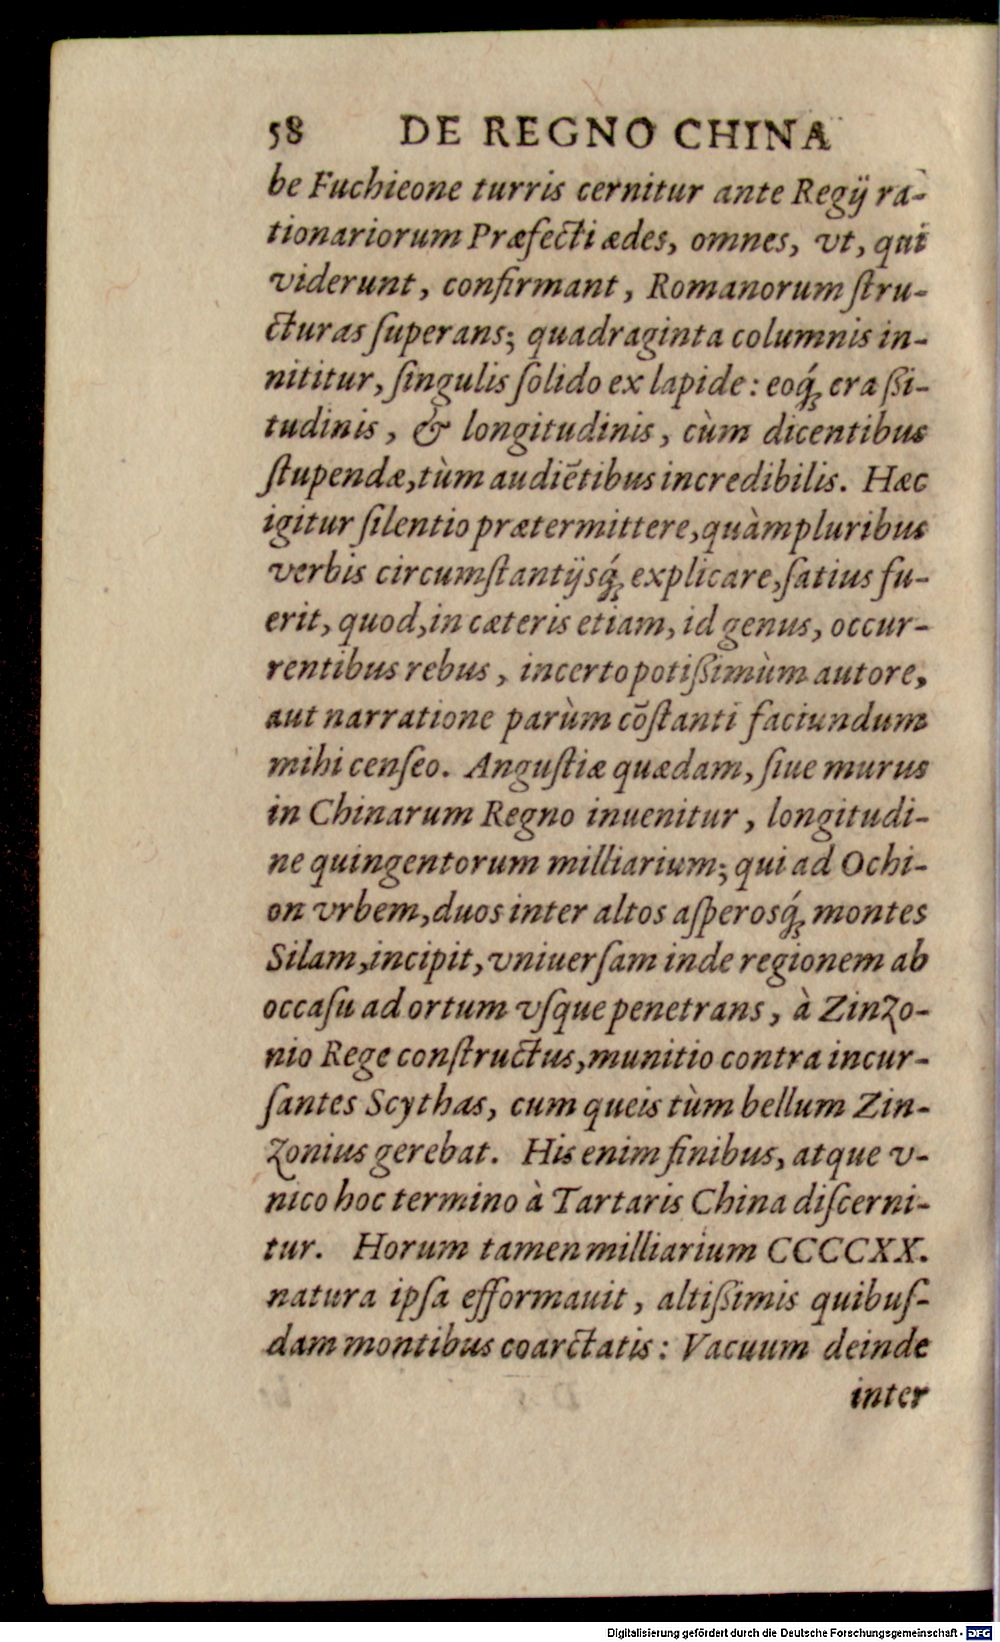 58 DE REGNO CHINA
be Fuchieone turris cernitur ante Regij ra-
tionariorum Præfecti ædes, omnes, vt, qui
viderunt, confirmant, Romanorum ſtru-
cturas ſuperans; quadraginta columnis in-
nititur, ſingulis ſolido ex lapide: eoq́ꝫ craſſi-
tudinis, & longitudinis, cùm dicentibus
ſtupendæ, tùm audiẽtibus incredibilis. Hæc
igitur ſilentio prætermittere, quàm pluribus
verbis circumſtantijsq́ꝫ explicare, ſatius fu-
erit, quod, in cæteris etiam, id genus, occur-
rentibus rebus, incerto potiſſimùm autore,
aut narratione parùm cõſtanti faciundum
mihi cenſeo. Anguſtiæ quædam, ſiue murus
in Chinarum Regno inuenitur, longitudi-
ne quingentorum milliarium; qui ad Ochi-
on vrbem, duos inter altos aſperosq́ꝫ montes
Silam, incipit, vniuerſam inde regionem ab
occaſu ad ortum vſque penetrans, à Zinzo-
nio Rege conſtructus, munitio contra incur-
ſantes Scythas, cum queis tùm bellum Zin-
zonius gerebat. His enim finibus, atque v-
nico hoc termino à Tartaris China diſcerni-
tur. Horum tamen milliarium CCCCXX.
natura ipſa efformauit, altiſſimis quibuſ-
dam montibus coarctatis: Vacuum deinde
inter
Digitalisierung gefördert durch die Deutsche Forschungsgemeinschaft - DFG